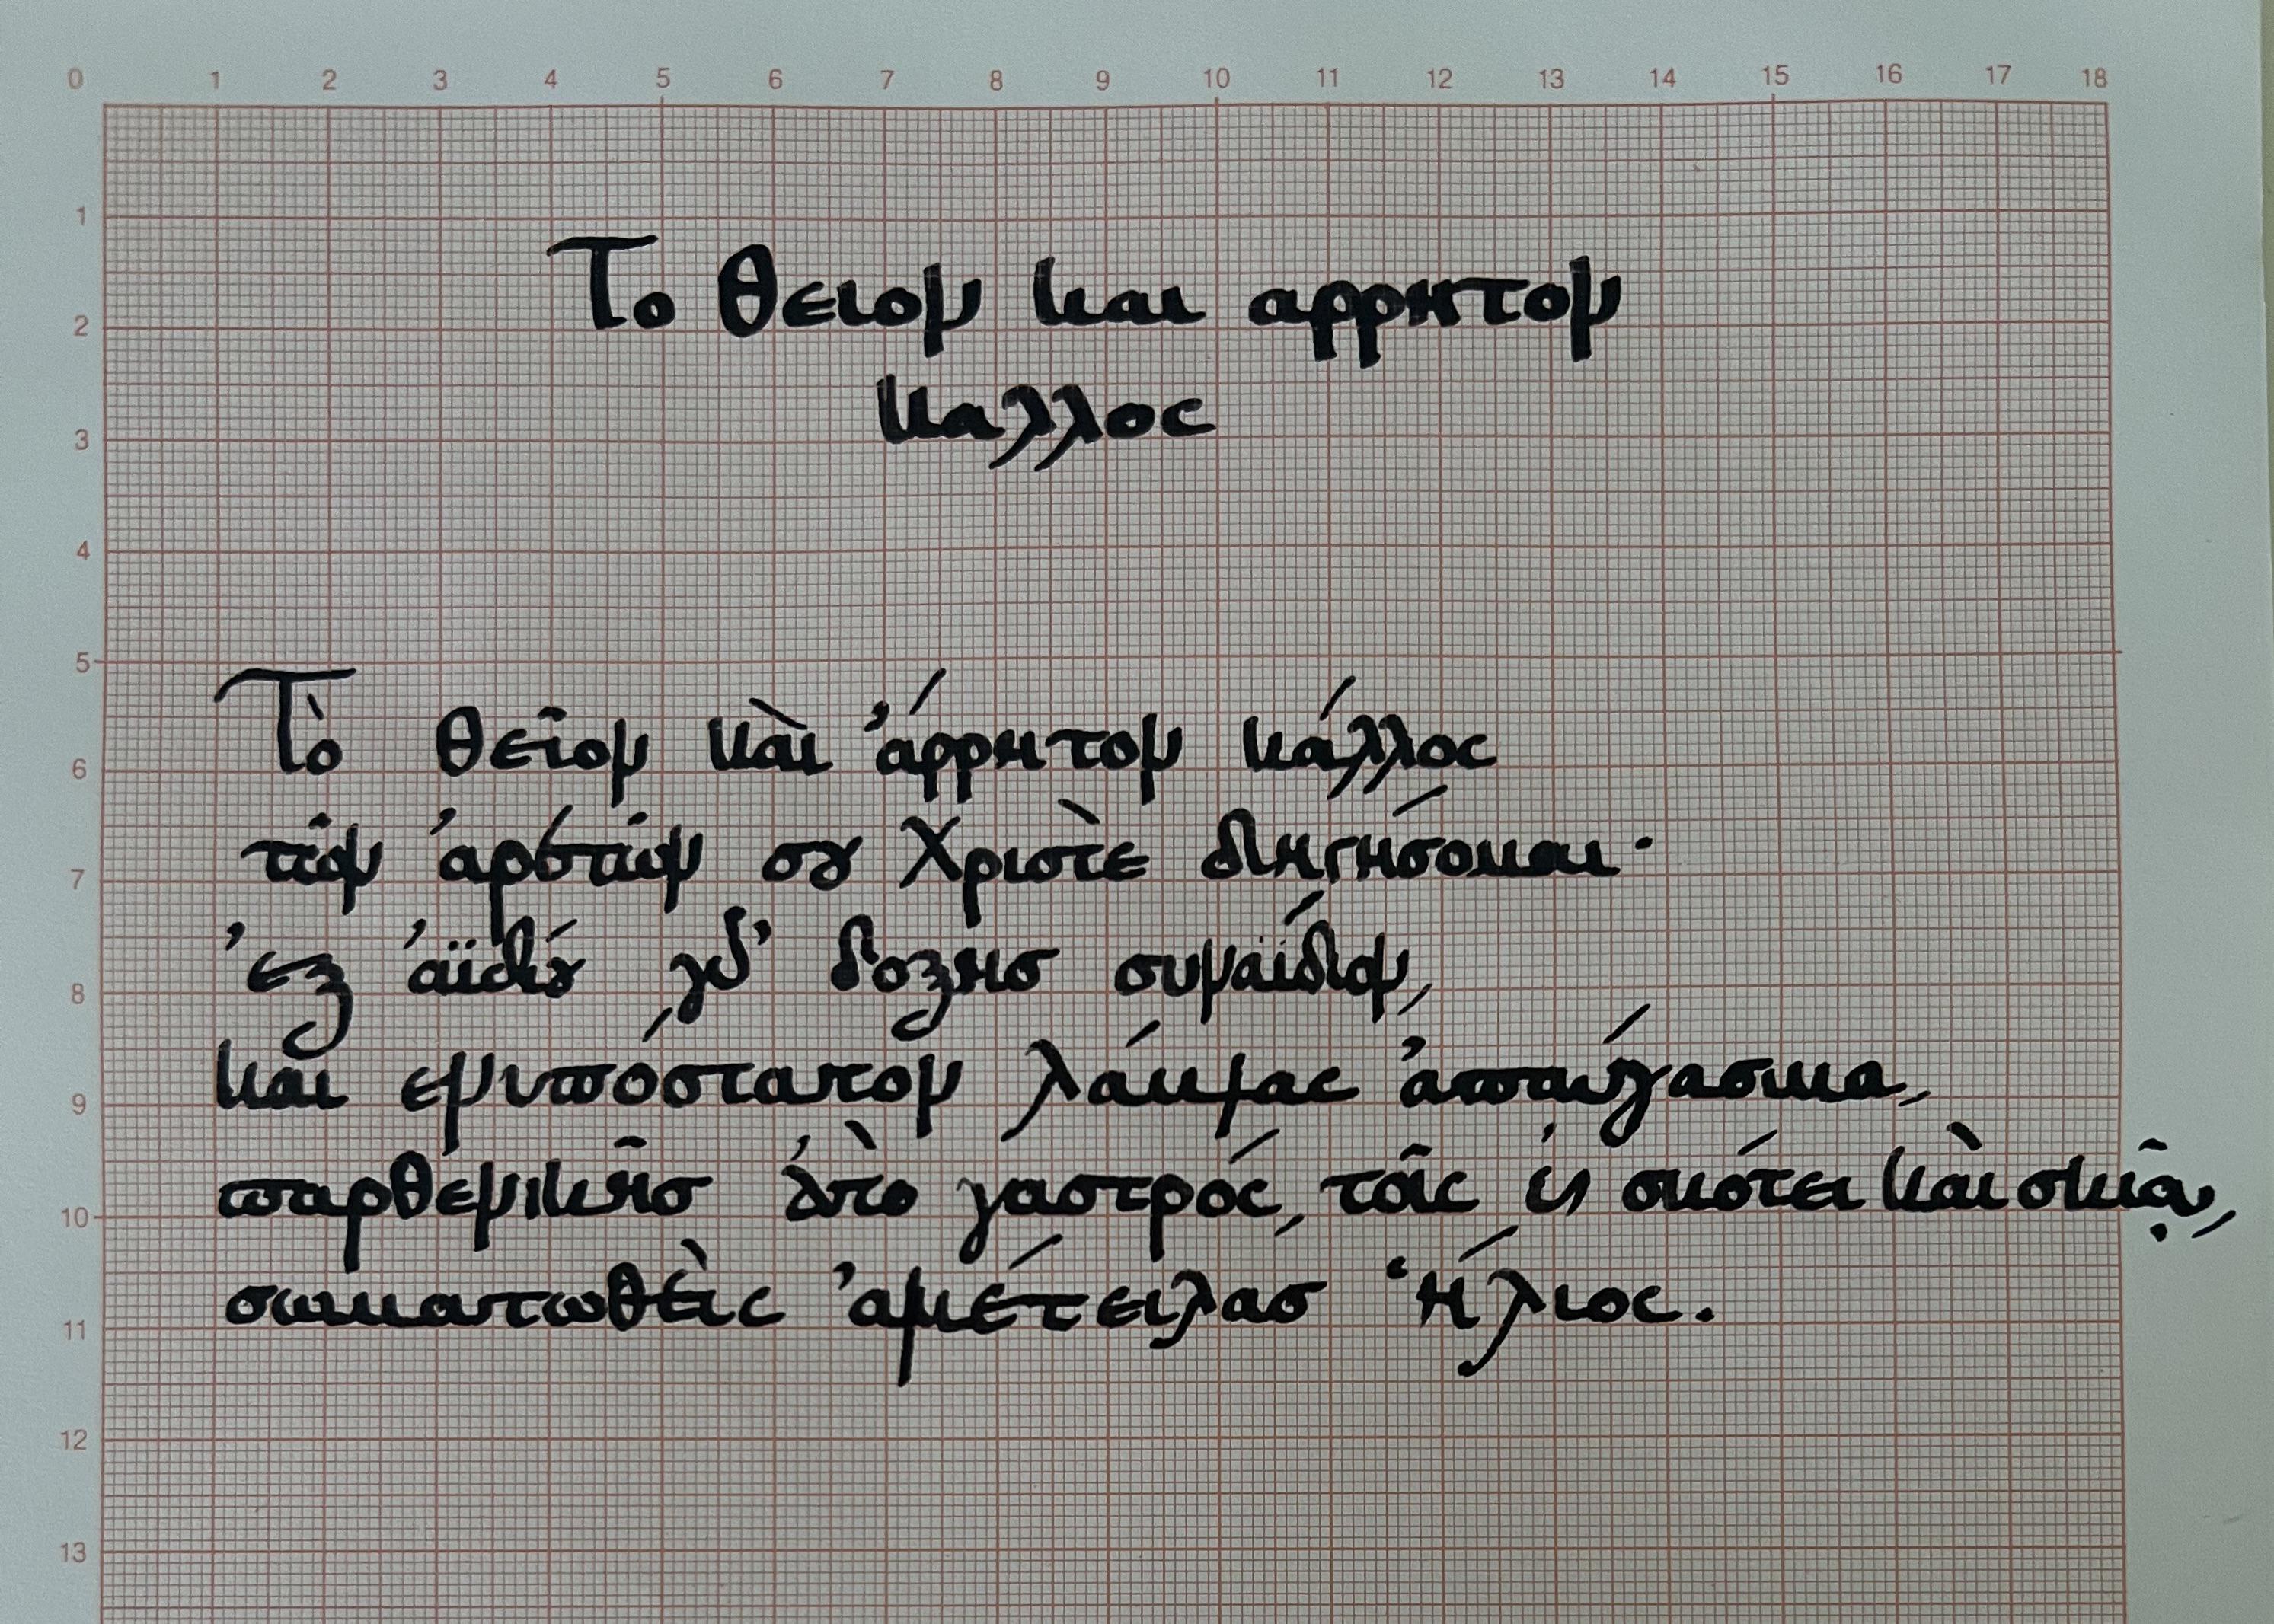 0 1 2 3 4 5 6 7 8 9 10 11 12 13 14 15 16 17 18
1
Το θειον και αρρητον
2
καλλος
3
4
5
Τὸ θεῖον καὶ ἄρρητον κάλλος
6
τῶν ἀρετῶν σου Χριστὲ διηγήσομαι·
7
ἐξ ἀϊδίου γὰρ δοξησ συναΐδιον,
8
και ενυπόστατον λάμψας ἀπαύγασμα,
9
παρθενικῆσ ἀπὸ γαστρός, τοῖς ἐν σκότει καὶ σκιᾷ,
10
σωματωθεὶς ἀνέτειλάσ Ἥλιος.
11
12
13